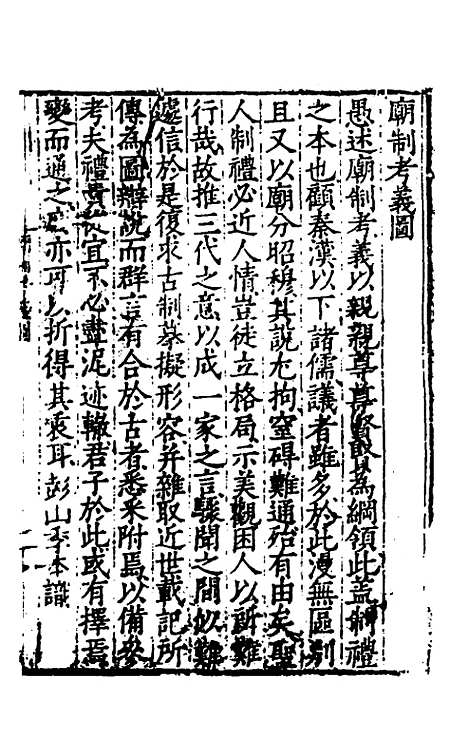 廟制考義圖
愚述廟制考義以親親尊尊賢賢爲綱領此蓋制禮
之本也顧秦漢以下諸儒議者雖多於此漫無區別
且又以廟分昭穆其説尤拘窒碍難通殆有由矣聖
人制禮必近人情豈徒立格局示美觀困人以所難
行哉故推三代之意以成一家之言驟聞之間似難
遽信於是復求古制摹擬形容并雜取近世載記所
傳為圖辯說而群言有合於古者悉采附焉以備參
考夫禮貴從宜不必盡泥迹轍君子於此或有擇焉
變而通之亦可以折得其衷耳彭山季本識